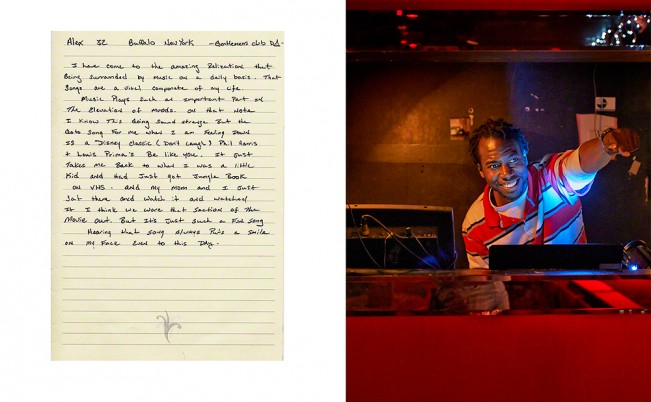 Alex 32 Buffalo New York - Gentlemens club DJ -
I have come to the amazing Relization that
Being surrounded by music on a daily basis. That
Songs are a vital componate of my life.
Music Plays Such an important Part on
The Elevation of moods. on that Note
I know This Going sound strange But the
Goto Song For me when I am Feeling Down
Is a Disney classic (Don't Laugh) Phil Harris
+ Louis Prima's Be like you. It Just
Takes me Back to when I was a little
Kid and Had Just got Jungle Book
on VHS. and my mom and I Just
Sat there and watch it and watched
It I think we wore that section of The
Movie out. But It's Just such a Fun Song
Hearing that song always Puts a smile
on my Face Even to this Day.